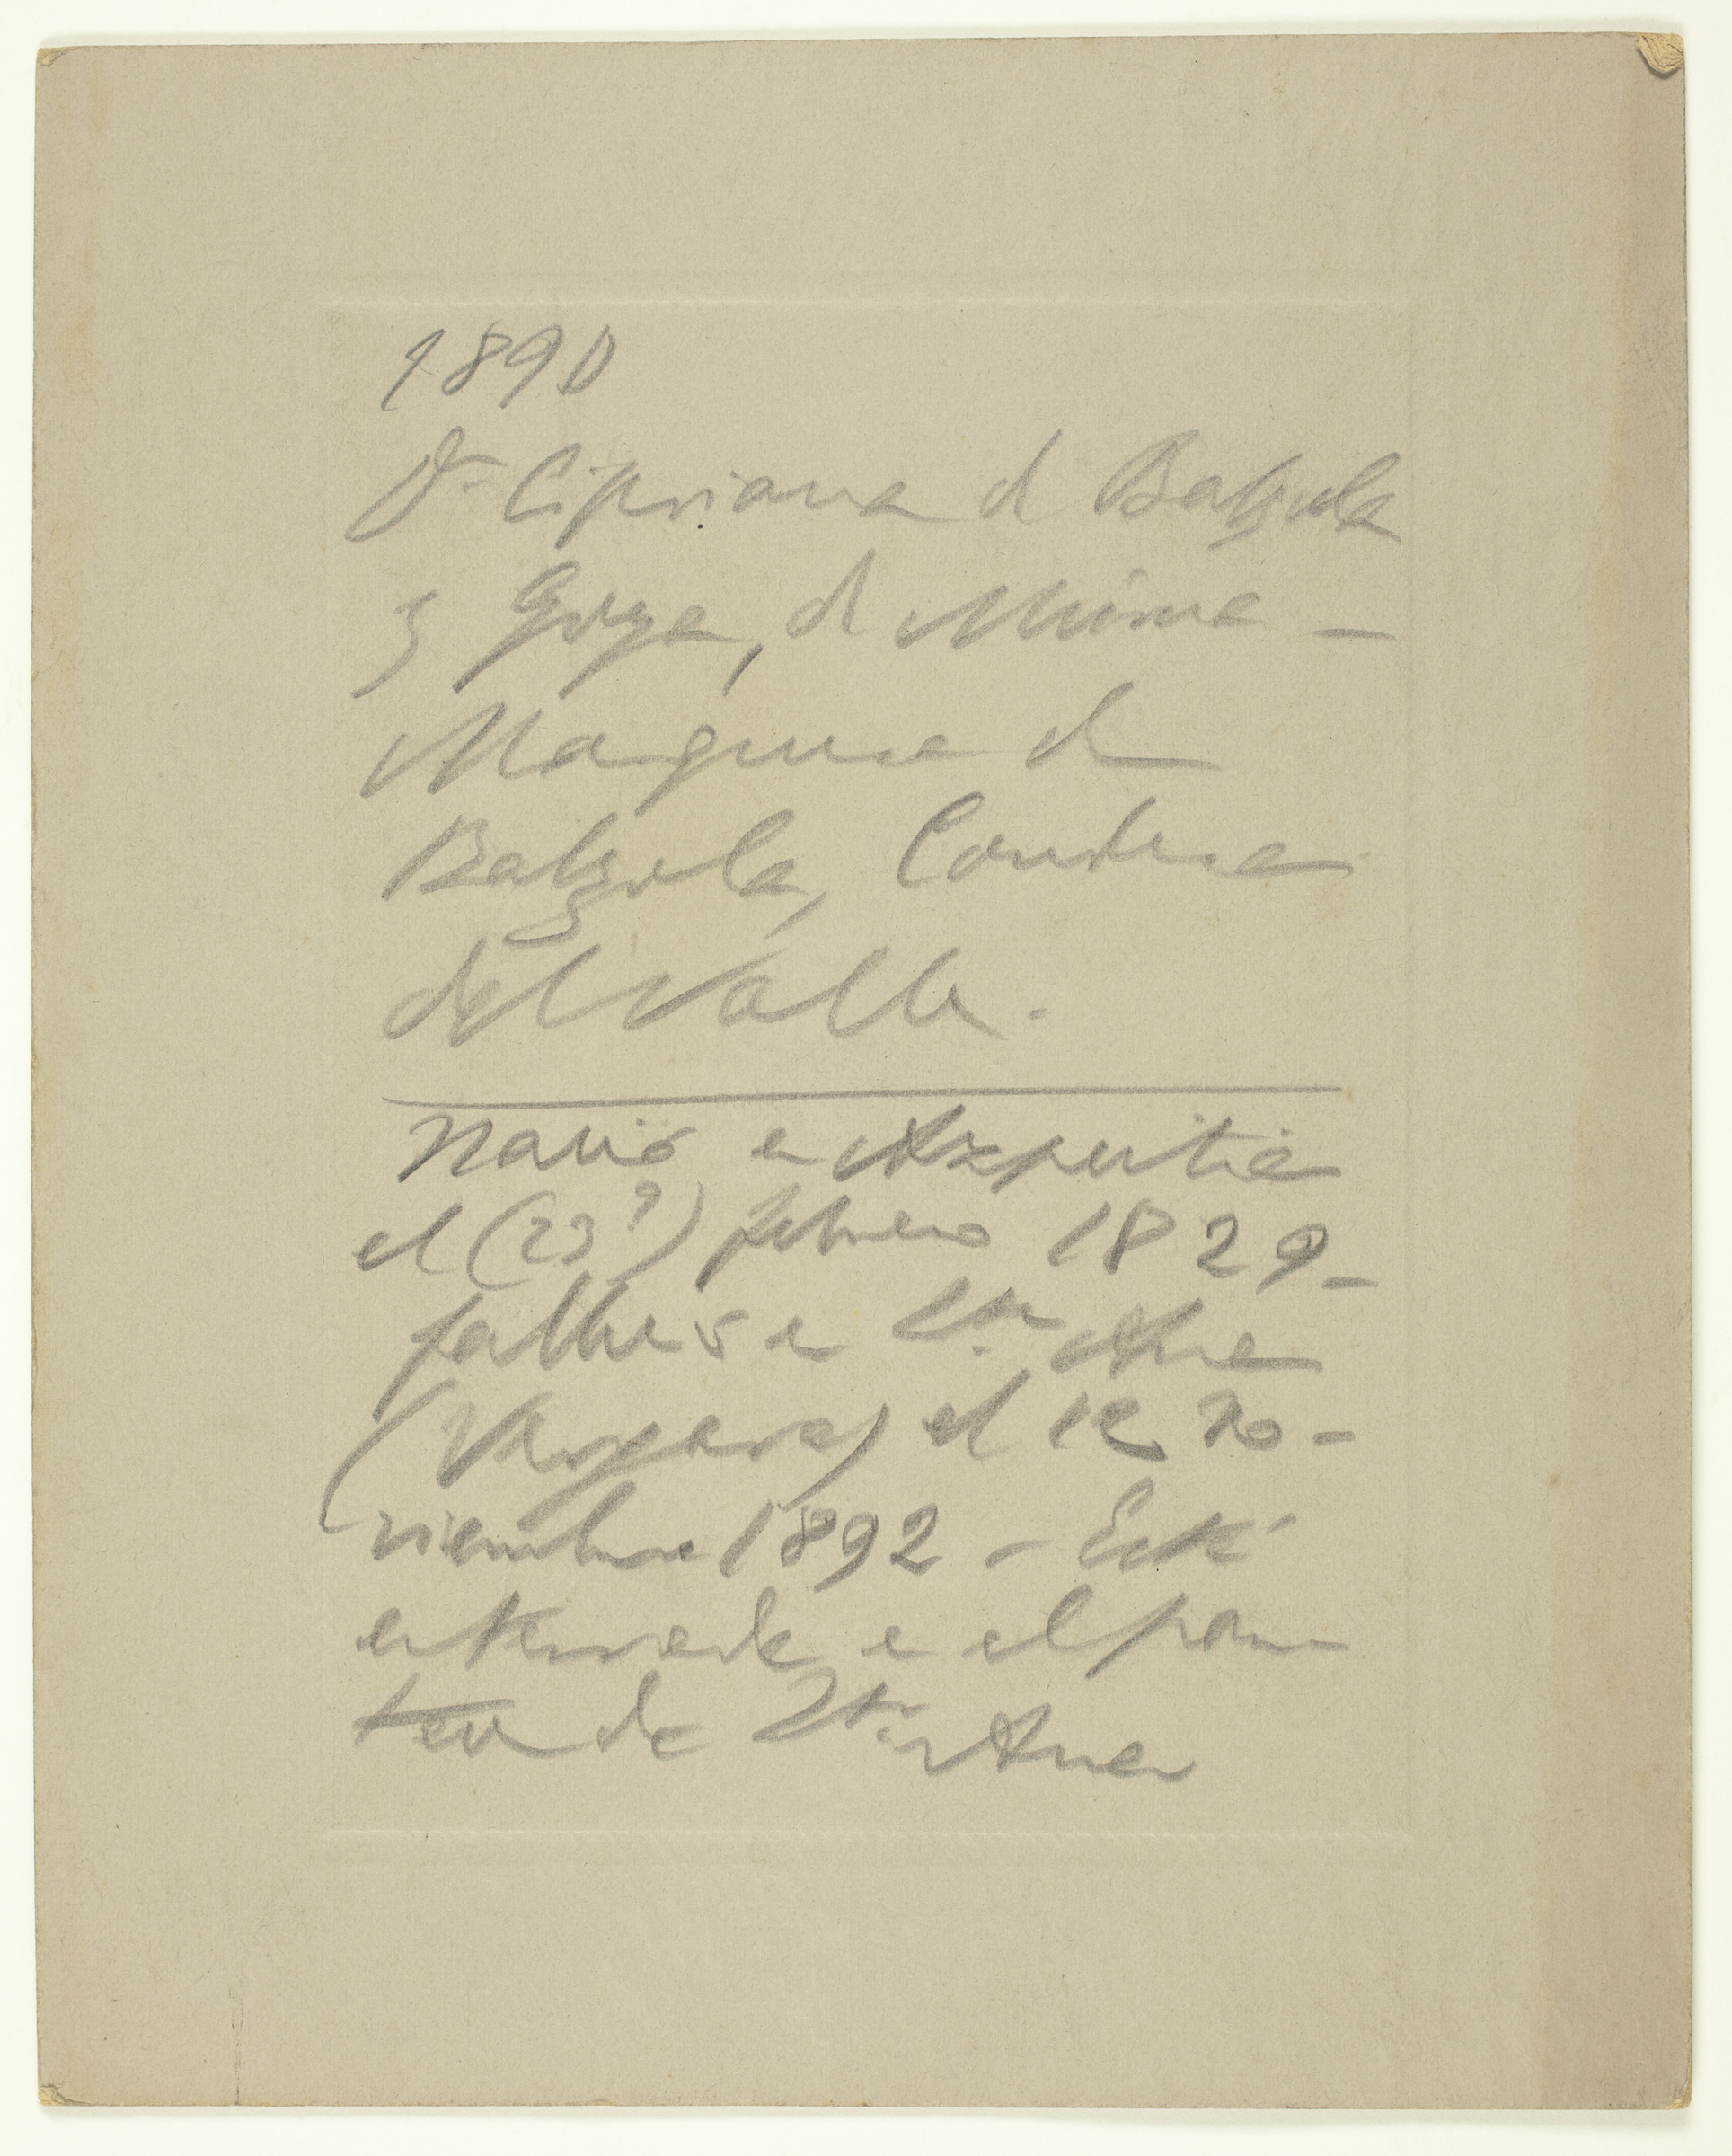 1890
Dª Cipriana d Balzola
y Goya, d Munive –
Marquesa de
Balzola, Condesa
del Valle.
Nació en Azpeitia
el (23?) febrero 1829 –
falleció en Sta. Ana
(Vergara) el 12 no-
viembre 1892 – Está
enterrada en el pan-
teon de Sta. Ana